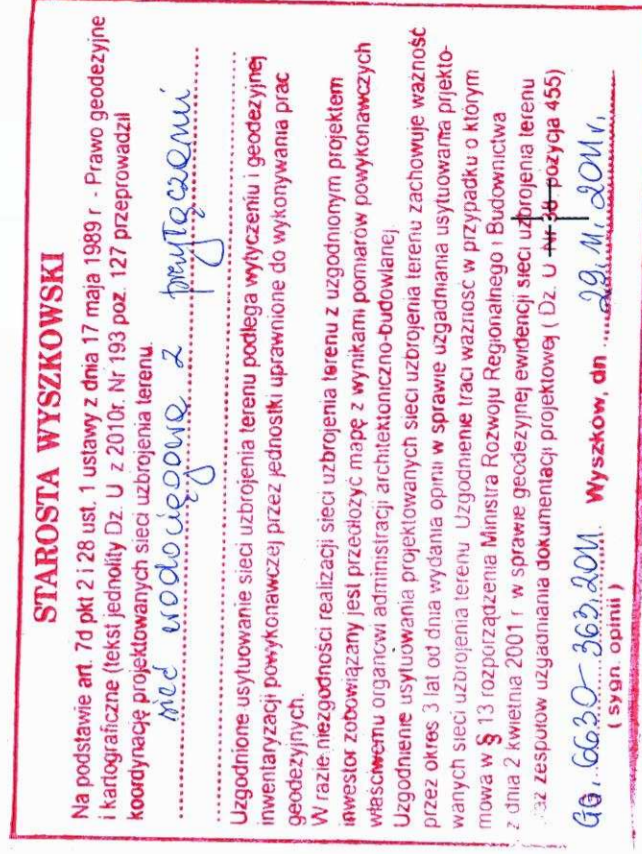 STAROSTA WYSZKOWSKI
Na podstawie art. 7d pkt 2 i 28 ust. 1 ustawy z dnia 17 maja 1989 r - Prawo geodezyjne
i kartograficzne (tekst jednolity Dz. U z 2010r. Nr 193 poz. 127 przeprowadził
koordynację projektowanych sieci uzbrojenia terenu.
sieć wodociągowa z przyłączami
Uzgodnione usytuowanie sieci uzbrojenia terenu podlega wytyczeniu i geodezyjnej
inwentaryzacji powykonawczej przez jednostki uprawnione do wykonywania prac
geodezyjnych.
W razie niezgodności realizacji sieci uzbrojenia terenu z uzgodnionym projektem
inwestor zobowiązany jest przedłożyć mapę z wynikami pomiarów powykonawczych
właściwemu organowi administracji architektoniczno-budowlanej
Uzgodnienie usytuowania projektowanych sieci uzbrojenia terenu zachowuje ważność
przez okres 3 lat od dnia wydania opinii w sprawie uzgadniania usytuowania prjekto-
wanych sieci uzbrojenia terenu Uzgodnienie traci ważność w przypadku o którym
mowa w § 13 rozporządzenia Ministra Rozwoju Regionalnego i Budownictwa
z dnia 2 kwietnia 2001 r w sprawie geodezyjnej ewidencji sieci uzbrojenia terenu
raz zespołów uzgadniania dokumentacji projektowej ( Dz. U Nr 38 pozycja 455)
GG. 6630-363.2011 Wyszków, dn 29.11.2011r.
( sygn. opinii )